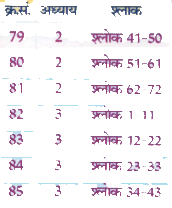 क्र.सं. अध्याय श्लोक
79 2 श्लोक 41-50
80 2 श्लोक 51-61
81 2 श्लोक 62-72
82 3 श्लोक 1-11
83 3 श्लोक 12-22
84 3 श्लोक 23-33
85 3 श्लोक 34-43